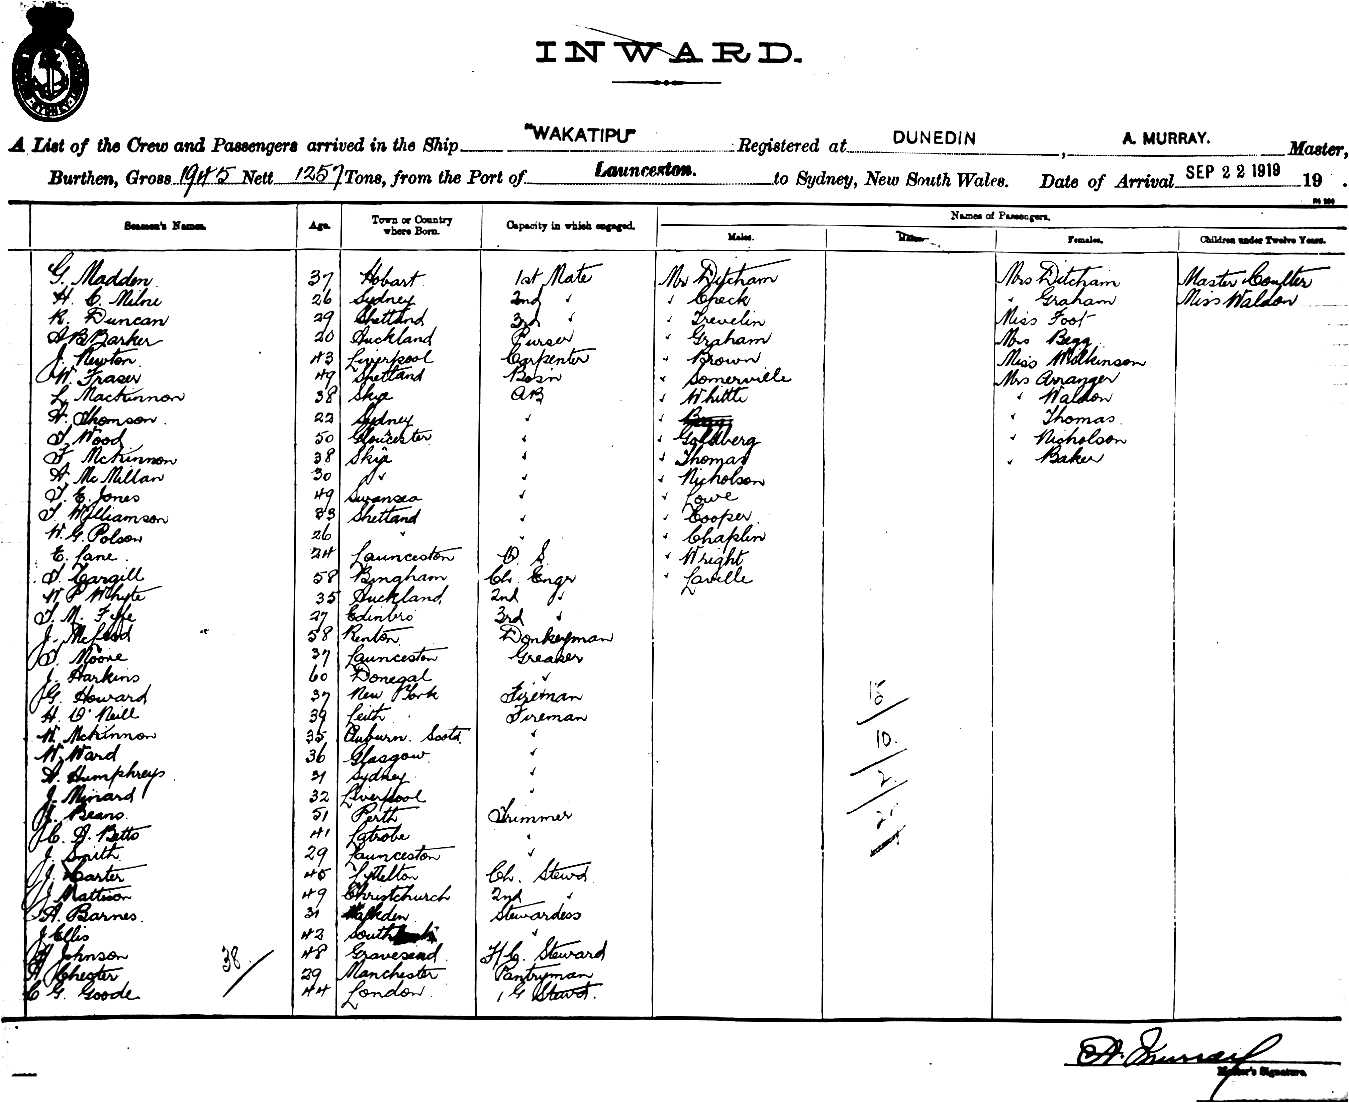 SYDNEY
INWARD.
A List of the Crew and Passengers arrived in the Ship "WAKATIPU" Registered at DUNEDIN, A. MURRAY. Master,
Burthen, Gross 1945 Nett 1257 Tons, from the Port of Launceston. to Sydney, New South Wales. Date of Arrival SEP 22 1919 19 .
Names of Passengers.
Seamen's Names. Age. Town or Country where Born. Capacity in which engaged. Males. Males. Females. Children under Twelve Years.
G. Madden 37 Hobart 1st Mate Mr Ditcham Mrs Ditcham Master Coulter
H. C. Milne 26 Sydney 2nd " " Check " Graham Miss Waldon
R. Duncan 29 Shetland 3rd " " Trevelin Miss Foot
A B Barker 20 Auckland Purser " Graham Mrs Begg
J. Newton 43 Liverpool Carpenter " Brown Miss Wilkinson
W. Fraser 49 Shetland Bosn " Somerville Mrs Arranger
L. Mackinnon 38 Skye AB " Whittle " Waldon
H. Thomson 22 Sydney " " Begg " Thomas
T. Wood 50 Gloucester " " Goldberg " Nicholson
F. McKinnon 38 Skye " " Thomas " Baker
A. McMillan 30 " " " Nicholson
T. E. Jones 49 Swansea " " Lowe
T. Williamson 33 Shetland " " Cooper
W. G. Polson 26 " " " Chaplin
E. Lane 24 Launceston O S. " Wright
T. Cargill 58 Bingham Ch. Engr " Laville
W P Whyte 35 Auckland 2nd "
T. M. Fyfe 27 Edinbro 3rd "
J. McLeod 58 Renton Donkeyman
T. Moore 37 Launceston Greaser
J. Harkins 60 Donegal "
G. Howard 37 New York Fireman
H. O'Neill 39 Leith Fireman
W. McKinnon 35 Auburn. Scotd "
W. Ward 36 Glasgow "
A. Humphreys 31 Sydney "
J. Minard 32 Liverpool "
J. Beans 51 Perth Trimmer
C. A. Betts 41 Latrobe "
J. Smith 29 Launceston "
J. Carter 45 Lyttelton Ch. Stewd
J Mattison 49 Christchurch 2nd "
A. Barnes 31 Stewardess
J Ellis 42 South "
A Johnson 48 Gravesend F/C. Steward
A. Chester 29 Manchester Pantryman
C G. Goode 44 London G Stewd.
15
10.
2
2
38
A. Murray
Master's Signature.